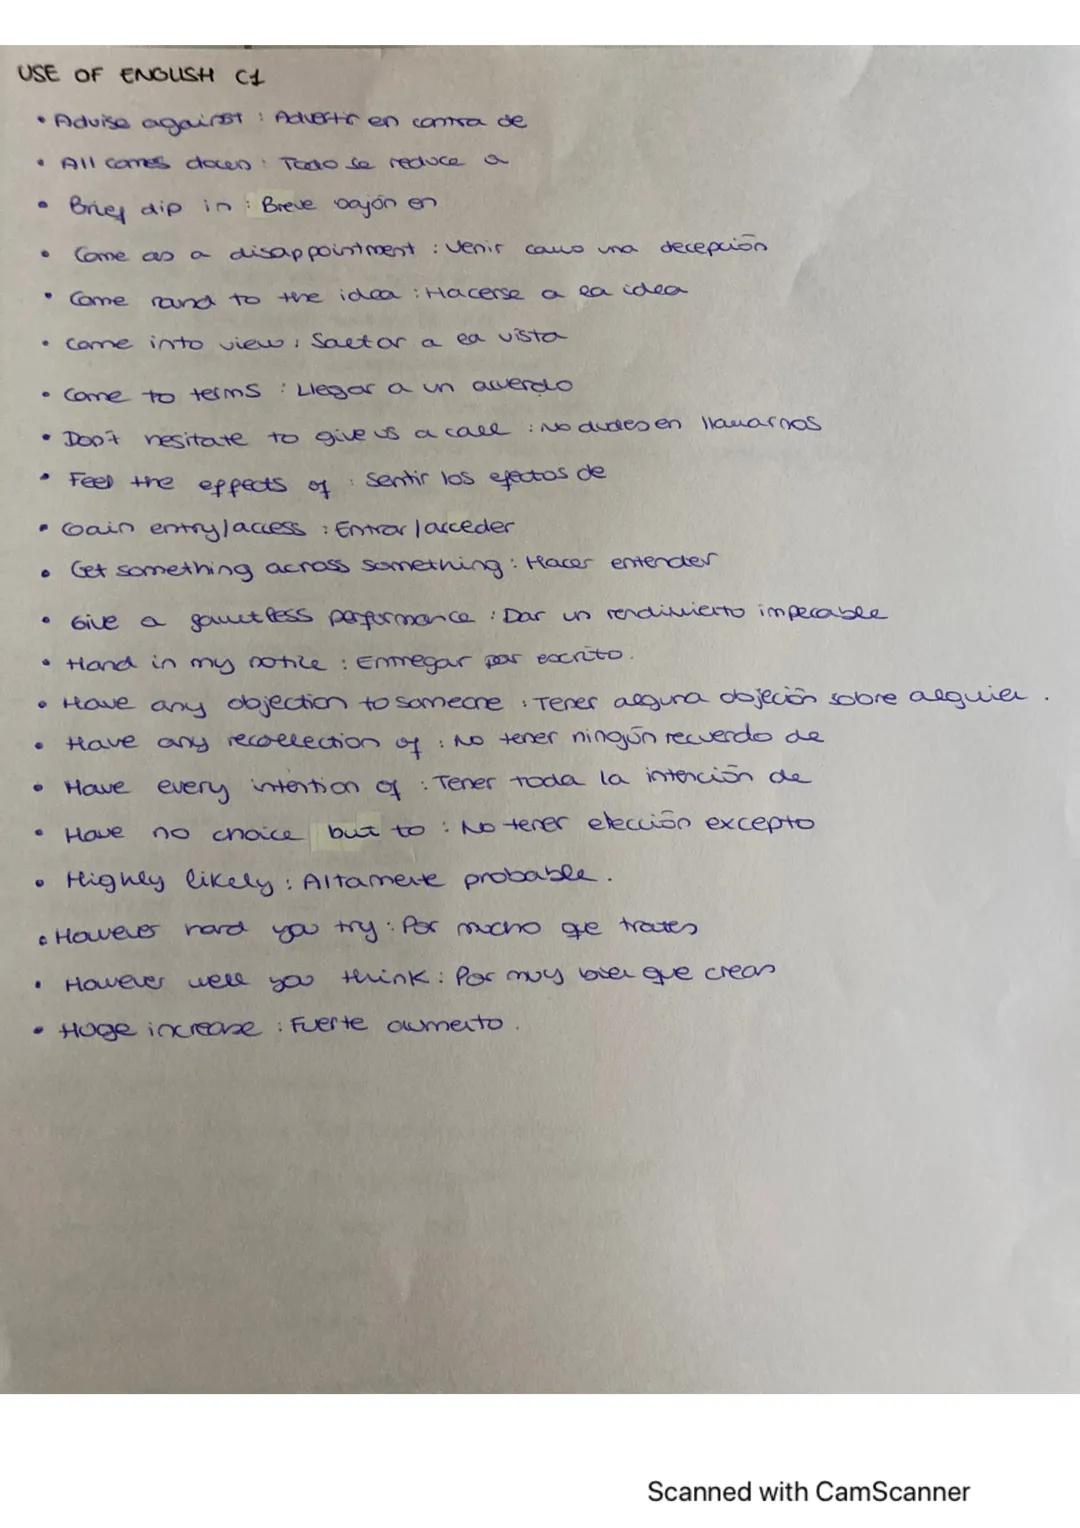 USE OF ENGLISH C1
• Advise against : Advertir en contra de
• All comes down : Todo se reduce a
• Brief dip in : Breve bajón en
• Come as a disappointment : Venir como una decepción
• Come round to the idea : Hacerse a la idea
• Come into view : Saltar a la vista
• Come to terms : Llegar a un acuerdo
• Don't hesitate to give us a call : No dudes en llamarnos
• Feel the effects of : Sentir los efectos de
• Gain entry/access : Entrar/acceder
• Get something across something : Hacer entender
• Give a gautless performance : Dar un rendimiento impecable
• Hand in my notice : Entregar por escrito.
• Have any objection to someone : Tener alguna objeción sobre alguien.
• Have any recollection of : No tener ningún recuerdo de
• Have every intention of : Tener toda la intención de
• Have no choice but to : No tener elección excepto
• Highly likely : Altamente probable.
• However hard you try : Por mucho que trates
• However well you think : Por muy bien que creas
• Huge increase : Fuerte aumento.
Scanned with CamScanner